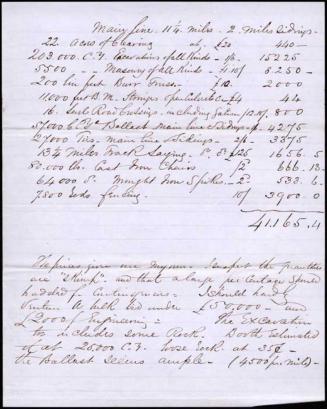 Main line 11¼ miles - 2 miles Sidings
22 Acres of Clearing at £20 440 -
203.000 C.Y. Excavations of all Kinds - 1/6 15225
5500 " Masonry of all Kinds £1.10/ 8.250 -
200 lin feet Burr Truss £10. 2000
11,000 feet B.M. £4 44
16. Road Crossings including 800
57000 C.Y. Ballast Main line & Sidings 4275
27000 Ties. Main line & Sidings 2/6 3375
13¼ Miles Track Laying £125 1656.5
80.000 lbs. Cast Iron Chairs /2 666.13
64000 lbs. Wrought Iron Spikes /2 533.6
7.800 rods fencing. 10/ 3900.0
41.165.4
The prices given are my own. I suspect the quantities
are "thin" - and that a large per centage should
be added for Contingencies - I should hardly
venture a bid under £50,000 - and
£2000 for Engineering - The Excavation
includes some Rock. Estimated
at 25,000 C.Y. loose Rock. at 55¢
the Ballast seems ample - (4500 per mile) -